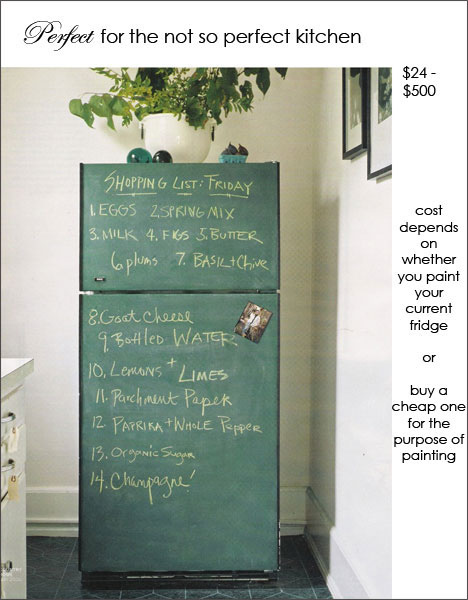 Perfect for the not so perfect kitchen
$24 -
$500
SHOPPING LIST: FRIDAY
1. EGGS 2. SPRING MIX
3. MILK 4. FIGS 5. BUTTER
6 plums 7. BASIL + Chive
8. Goat cheese
9. Bottled WATER
10. Lemons + LIMES
11. Parchment Paper
12. PAPRIKA + WHOLE Pepper
13. Organic Sugar
14. Champagne!
cost
depends
on
whether
you paint
your
current
fridge
or
buy a
cheap one
for the
purpose of
painting